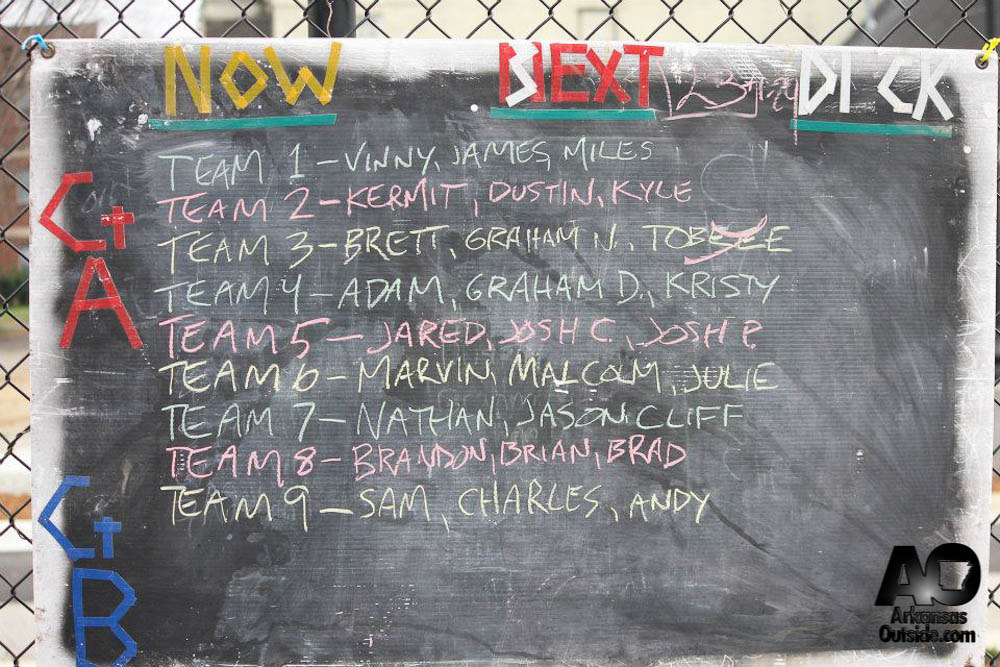 NOW NEXT DICK
TEAM 1 - VINNY, JAMES, MILES
C+
A
TEAM 2 - KERMIT, DUSTIN, KYLE
TEAM 3 - BRETT, GRAHAM N., TOBEE
TEAM 4 - ADAM, GRAHAM D., KRISTY
TEAM 5 - JARED, JOSH C., JOSH P.
TEAM 6 - MARVIN, MALCOLM, JULIE
TEAM 7 - NATHAN, JASON, CLIFF
TEAM 8 - BRANDON, BRIAN, BRAD
TEAM 9 - SAM, CHARLES, ANDY
C+
B
AO
Arkansas
Outside.com